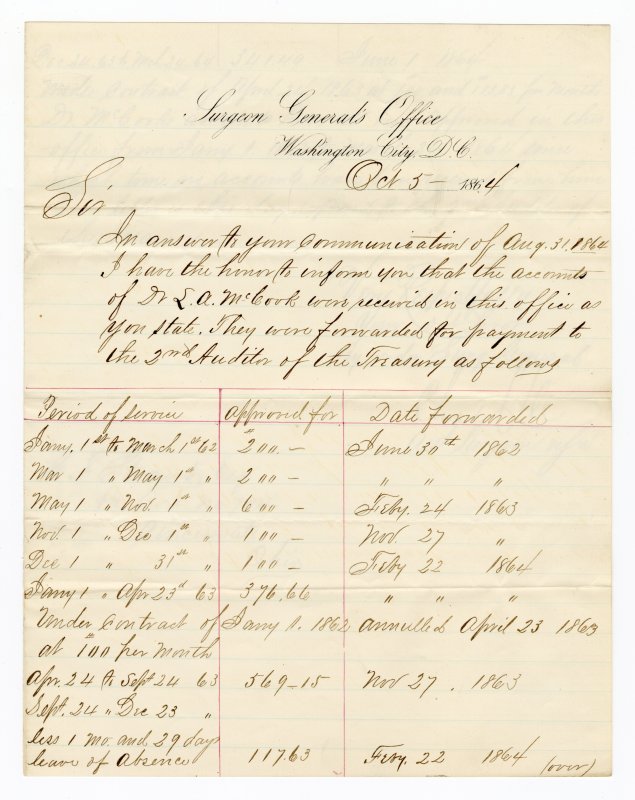 Surgeon General's Office
Washington City, D.C.
Oct 5 — 1864
Sir
In answer to your communication of Aug. 31. 1864
I have the honor to inform you that the accounts
of Dr L. A. McCook were received in this office as
you state. They were forwarded for payment to
the 2nd Auditor of the Treasury as follows
Period of service approved for Date forwarded
Jany. 1st to March 1st 62 $200 — June 30th 1862
Mar 1 " May 1st " 200 — " " "
May 1 " Nov. 1st " 600 — Feby. 24 1863
Nov. 1 " Dec 1st " 100 — Nov 27 "
Dec 1 " 31st " 100 — Feby 22 1864
Jany 1 " Apr 23d 63 376.66 " " "
Under contract of Jany 1. 1862 annulled April 23 1863
at $100 per month
Apr. 24 to Sept 24 63 569-15 Nov 27. 1863
Sept. 24 " Dec 23 "
less 1 mo. and 29 days
leave of absence 117.63 Feby. 22 1864 (over)